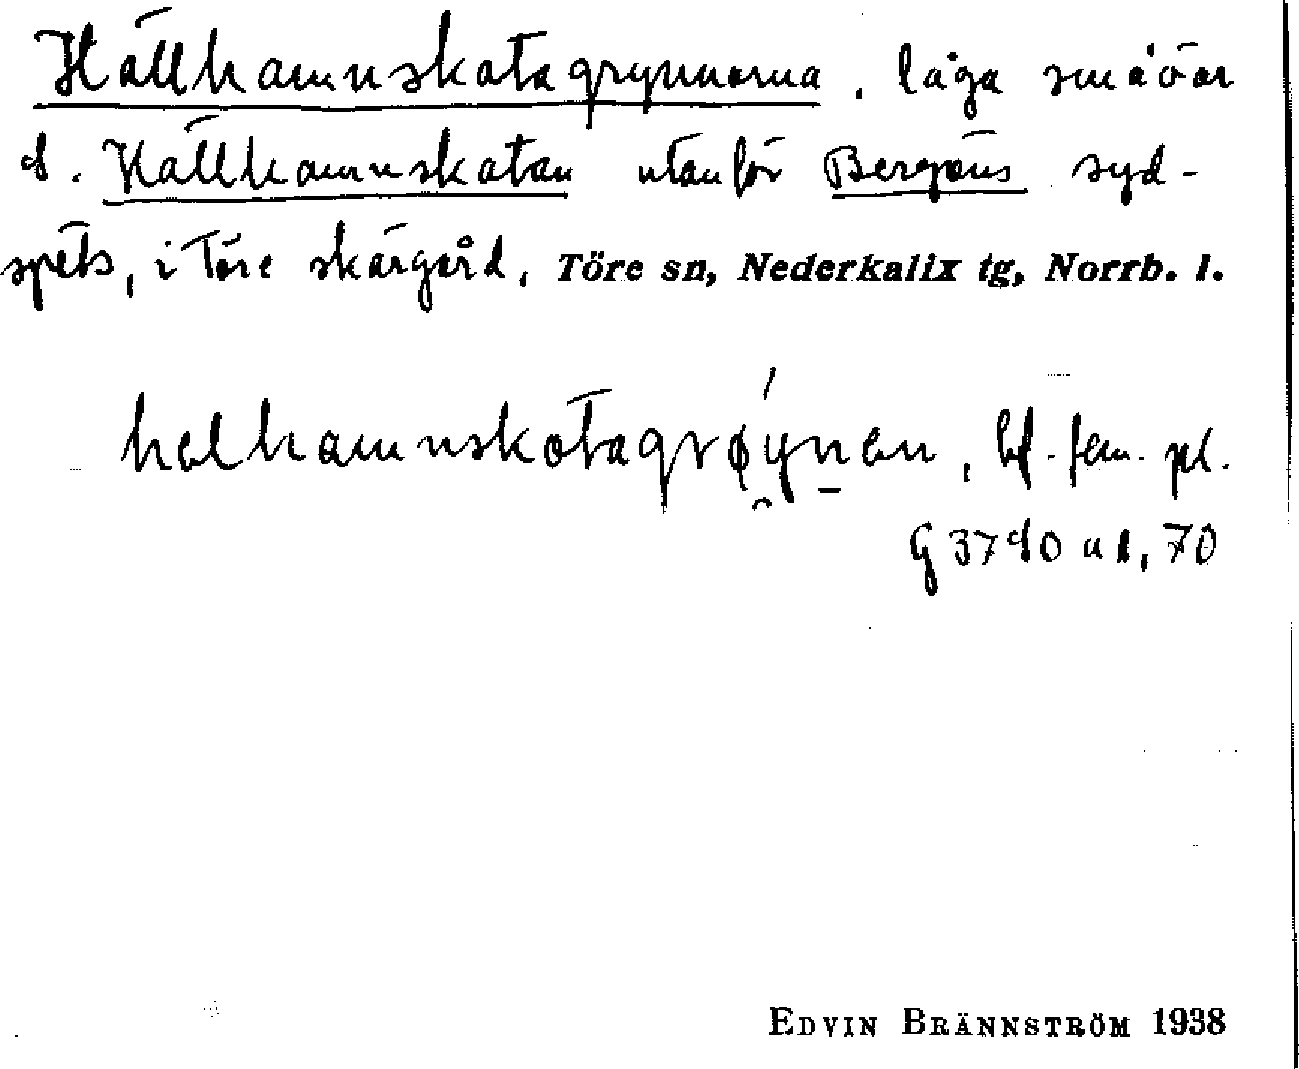 Hällhamnskatagrynnorna, låga småöar
d. Hällhamnskatan utanför Bergöns syd-
spets, i Töre skärgård, Töre sn, Nederkalix tg, Norrb. l.
helhamnskatagrøynen, bf. fem. pl.
G 3740 ad, 70
EDVIN BRÄNNSTRÖM 1938